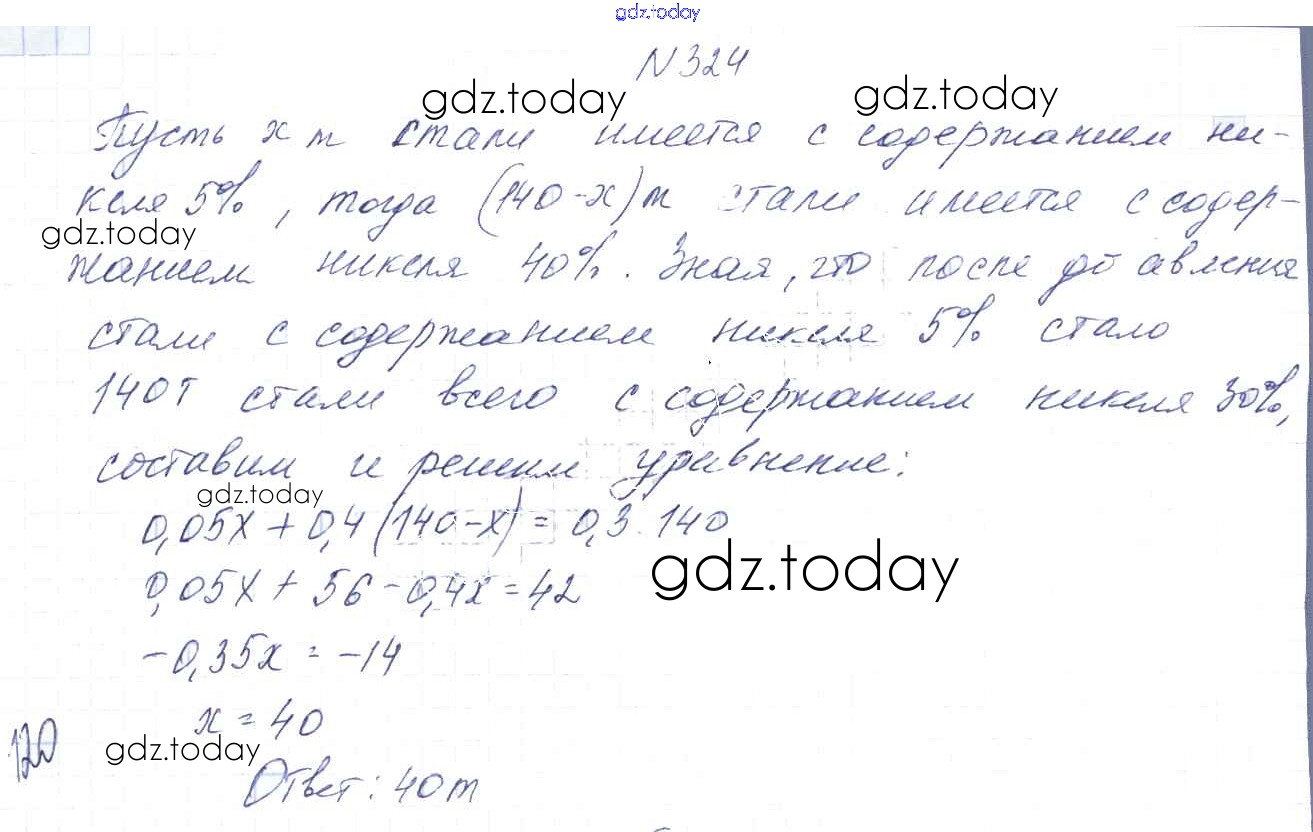 gdz.today
N 324
gdz.today gdz.today
Пусть x т стали имеется с содержанием ни-
келя 5%, тогда (140-x)т стали имеется с содер-
gdz.today
жанием никеля 40%. Зная, что после добавления
стали с содержанием никеля 5% стало
140т стали всего с содержанием никеля 30%,
составим и решим уравнение:
gdz.today
0,05x + 0,4(140-x) = 0,3·140
gdz.today
0,05x + 56 - 0,4x = 42
-0,35x = -14
x = 40
120
gdz.today
Ответ: 40т